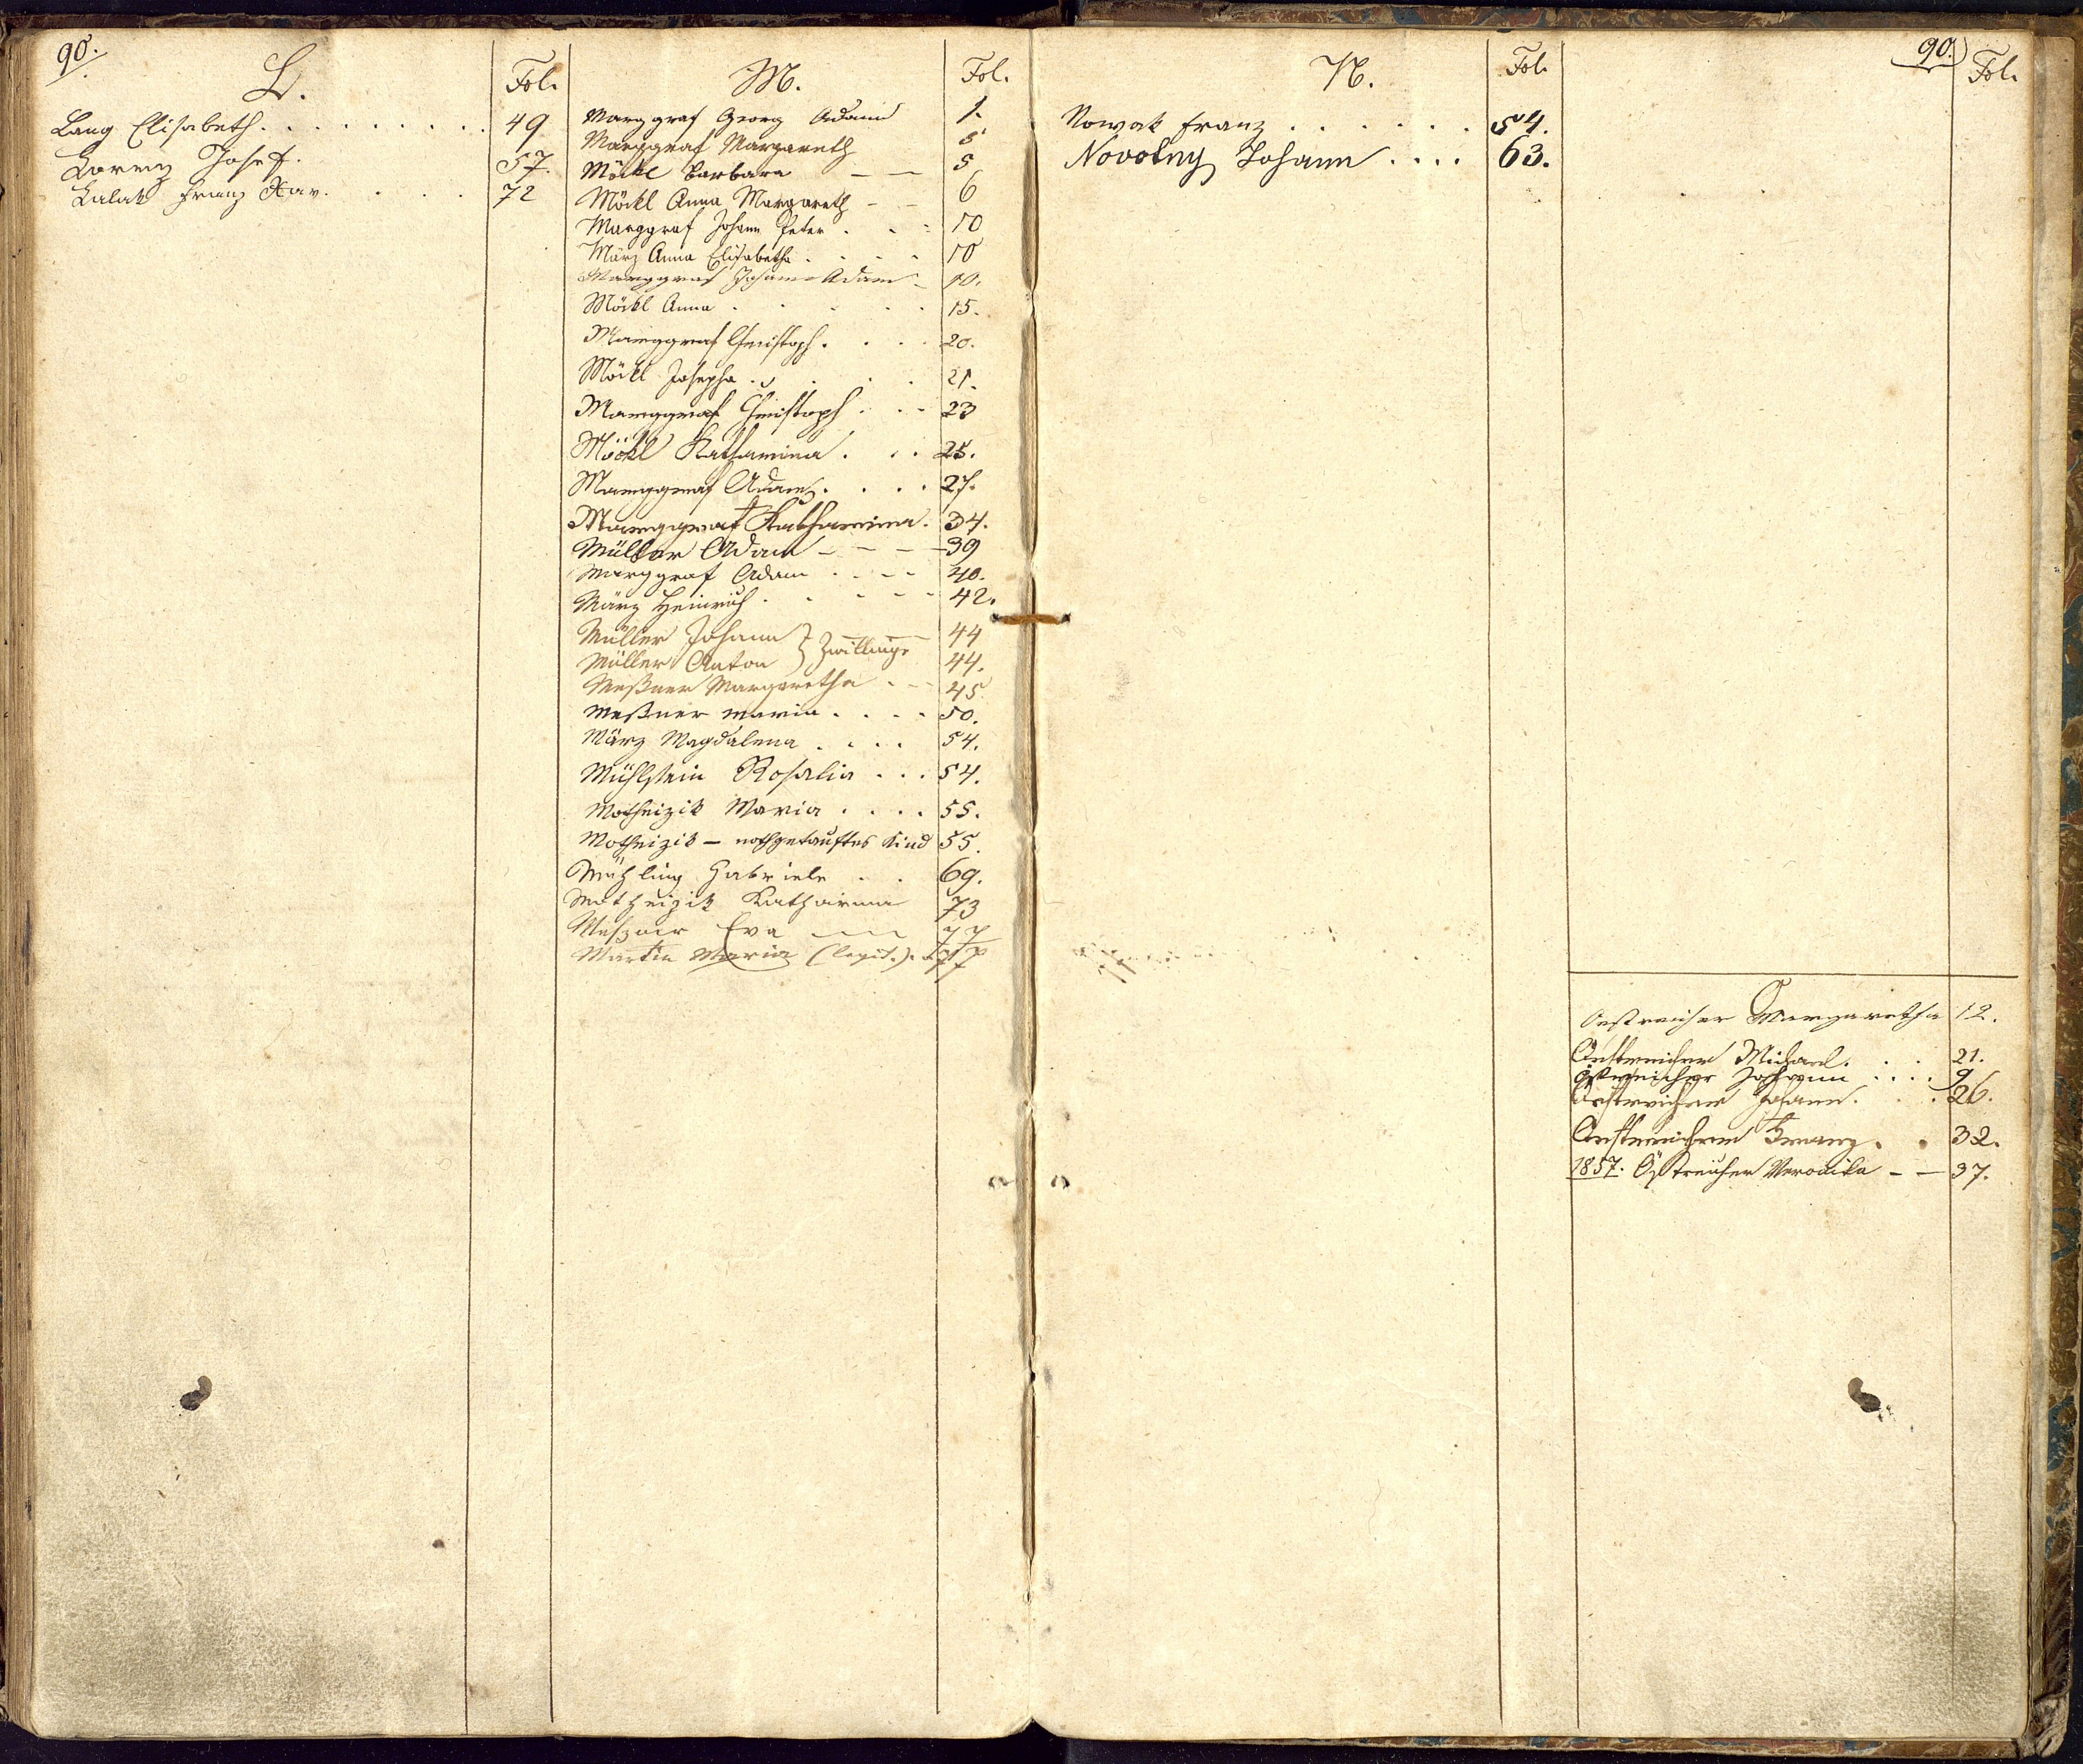 90.
L. Fol.
Lang Elisabeth. . . . . . . . . 49
Lorenz Josef. 57.
Lalak Franz Xav. . . . 72
M. Fol.
Marggraf Georg Adam 1.
Marggraf Margareth 5
Möckl Barbara — — 5
Möckl Anna Margareth - - 6
Marggraf Johann Peter . - - 10
März Anna Elisabetha . . . . 10
Marggraf Johann Adam - 10.
Möckl Anna . . . . . 15.
Marggraf Christoph . . . . 20.
Möckl Josepha . . . . . 21.
Marggraf Christoph . . . 23
Möckl Katharina . . . 25.
Marggraf Adam . . . . 27.
Marggraf Katharina. 34.
Müller Adam - - - - 39
Marggraf Adam . . - - 40.
März Heinrich . . - - - 42.
Müller Johann } Zwillinge 44
Müller Anton 44.
Meßner Margaretha . - 45
Meßner Maria . . . . 50.
März Magdalena . . . . 54.
Mühlstein Rosalia . . . 54.
Motheizik Maria . . . . 55.
Motheizik — nothgetauftes Kind 55.
Mühling Gabriele . . 69.
Motheizik Katharina 73
Eva 77
Martin Maria (legit.). 77
N. Fol.
Nowak Franz . . . . . . 54.
Novotny Johann . . . . 63.
90. Fol.
O
Oestreicher Margaretha 12.
Oestreicher Michael. . . 21.
Östreicher Johann . . . . 9
Oestreicher Johann. . . 26.
Oestreicher Franz. . 32.
1857. Östreicher Veronika - — 37.